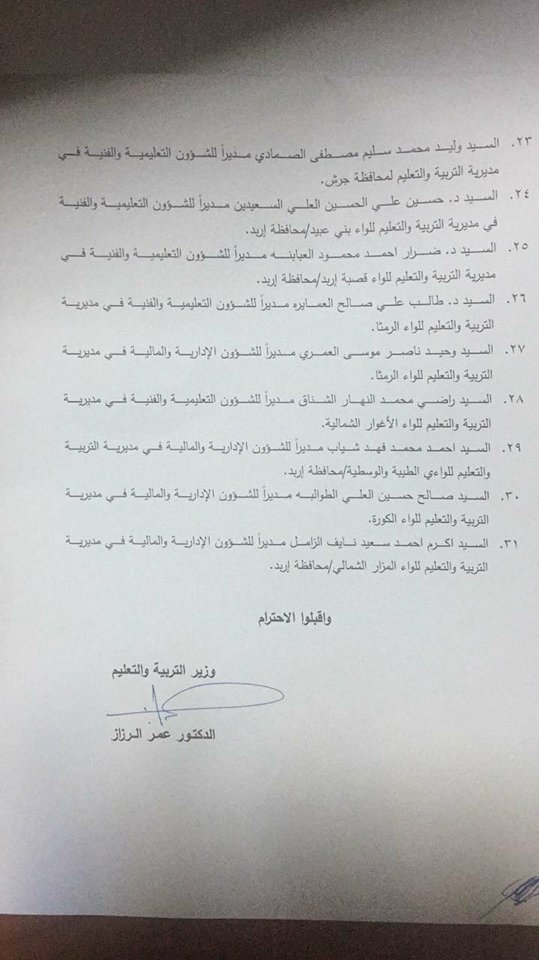 ٢٣. السيد وليد محمد سليم مصطفى الصمادي مديراً للشؤون التعليمية والفنية في
مديرية التربية والتعليم لمحافظة جرش.
٢٤. السيد د. حسين علي الحسين العلي السعيدين مديراً للشؤون التعليمية والفنية
في مديرية التربية والتعليم للواء بني عبيد/محافظة إربد.
٢٥. السيد د. ضرار احمد محمود العبابنه مديراً للشؤون التعليمية والفنية في
مديرية التربية والتعليم للواء قصبة إربد/محافظة إربد.
٢٦. السيد د. طالب علي صالح العمايره مديراً للشؤون التعليمية والفنية في مديرية
التربية والتعليم للواء الرمثا.
٢٧. السيد وحيد ناصر موسى العمري مديراً للشؤون الإدارية والمالية في مديرية
التربية والتعليم للواء الرمثا.
٢٨. السيد راضي محمد النهار الشناق مديراً للشؤون التعليمية والفنية في مديرية
التربية والتعليم للواء الأغوار الشمالية.
٢٩. السيد احمد محمد فهد شياب مديراً للشؤون الإدارية والمالية في مديرية التربية
والتعليم للواءي الطيبة والوسطية/محافظة إربد.
٣٠. السيد صالح حسين العلي الطوالبه مديراً للشؤون الإدارية والمالية في مديرية
التربية والتعليم للواء الكورة.
٣١. السيد اكرم احمد سعيد نايف الزامل مديراً للشؤون الإدارية والمالية في مديرية
التربية والتعليم للواء المزار الشمالي/محافظة إربد.
واقبلوا الاحترام
وزير التربية والتعليم
الدكتور عمر الرزاز